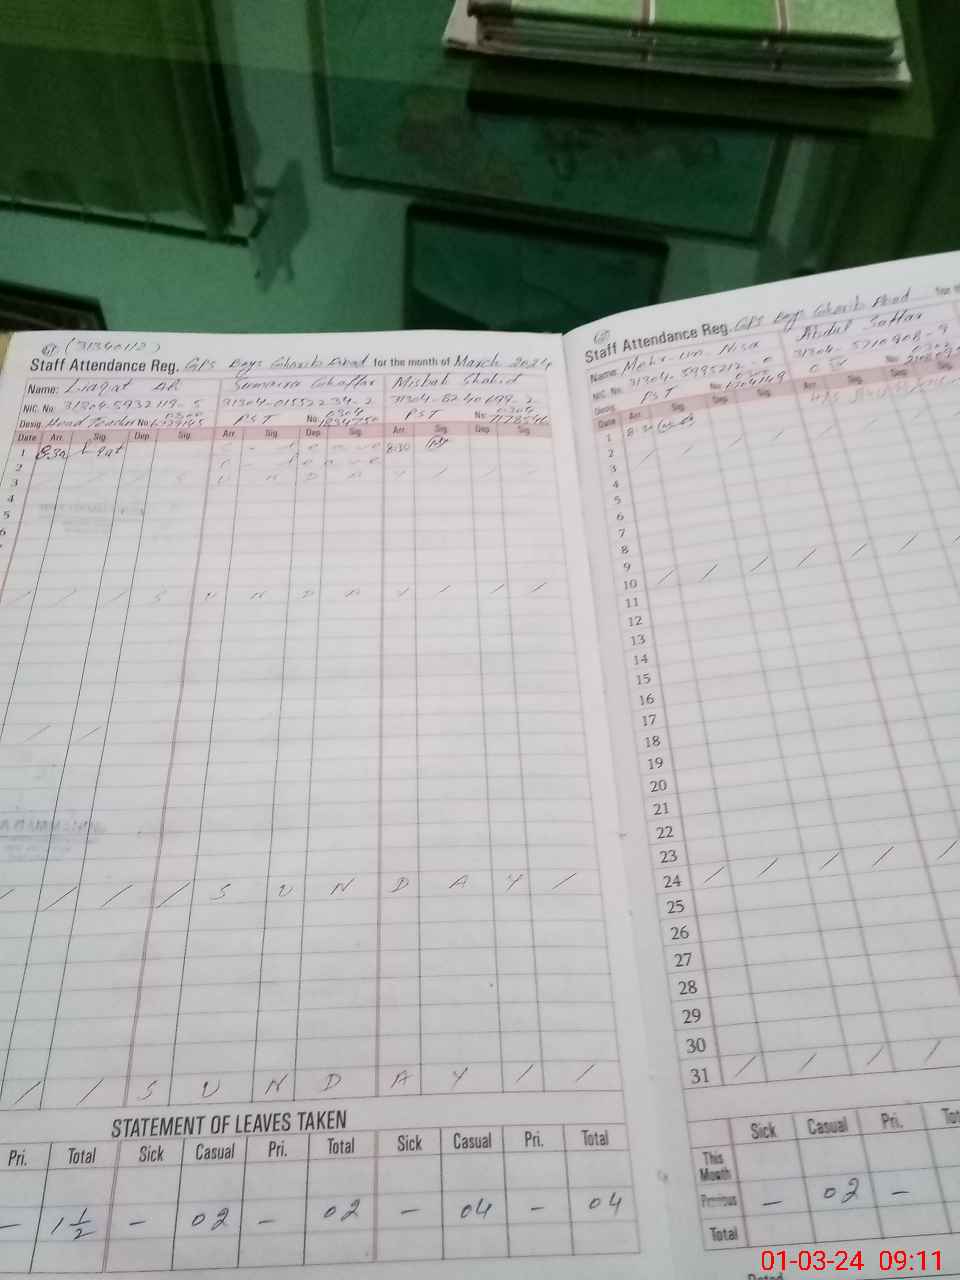 (31340112)
Staff Attendance Reg. GPS Boys Gharib Abad for the month of March 2024
Name: Liaqat Ali Sumaira Ghaffar Misbah Shahid
NIC. No. 31304-5932119-5 31304-0155234-2 31304-8240699-2
Desig. Head Teacher No. PST No. 0304 PST No. 0305
Date Arr. Sig. Dep. Arr. Sig. Dep. Sig. Arr. Sig. Dep. Sig.
1 8:30 Liaqat C - leave 8:30
2 C - leave
3 SUNDAY
4
5
6
SUNDAY
SUNDAY
SUNDAY
STATEMENT OF LEAVES TAKEN
Pri. Total Sick Casual Pri. Total Sick Casual Pri. Total
- 1 1/2 - 02 - 02 - 04 - 04
Staff Attendance Reg. GPS Boys Gharib Abad for
Name: Mehr-un-Nisa Abdul Sattar
NIC. No. 31304-5710908-9
Desig. PST No. No.
Date Arr. Sig. Dep. Sig. Arr. Sig. Dep. Sig.
1 8:30
2
3
4
5
6
7
8
9
10
11
12
13
14
15
16
17
18
19
20
21
22
23
24
25
26
27
28
29
30
31
Sick Casual Pri.
This Month
Previous - 02 -
Total
01-03-24 09:11